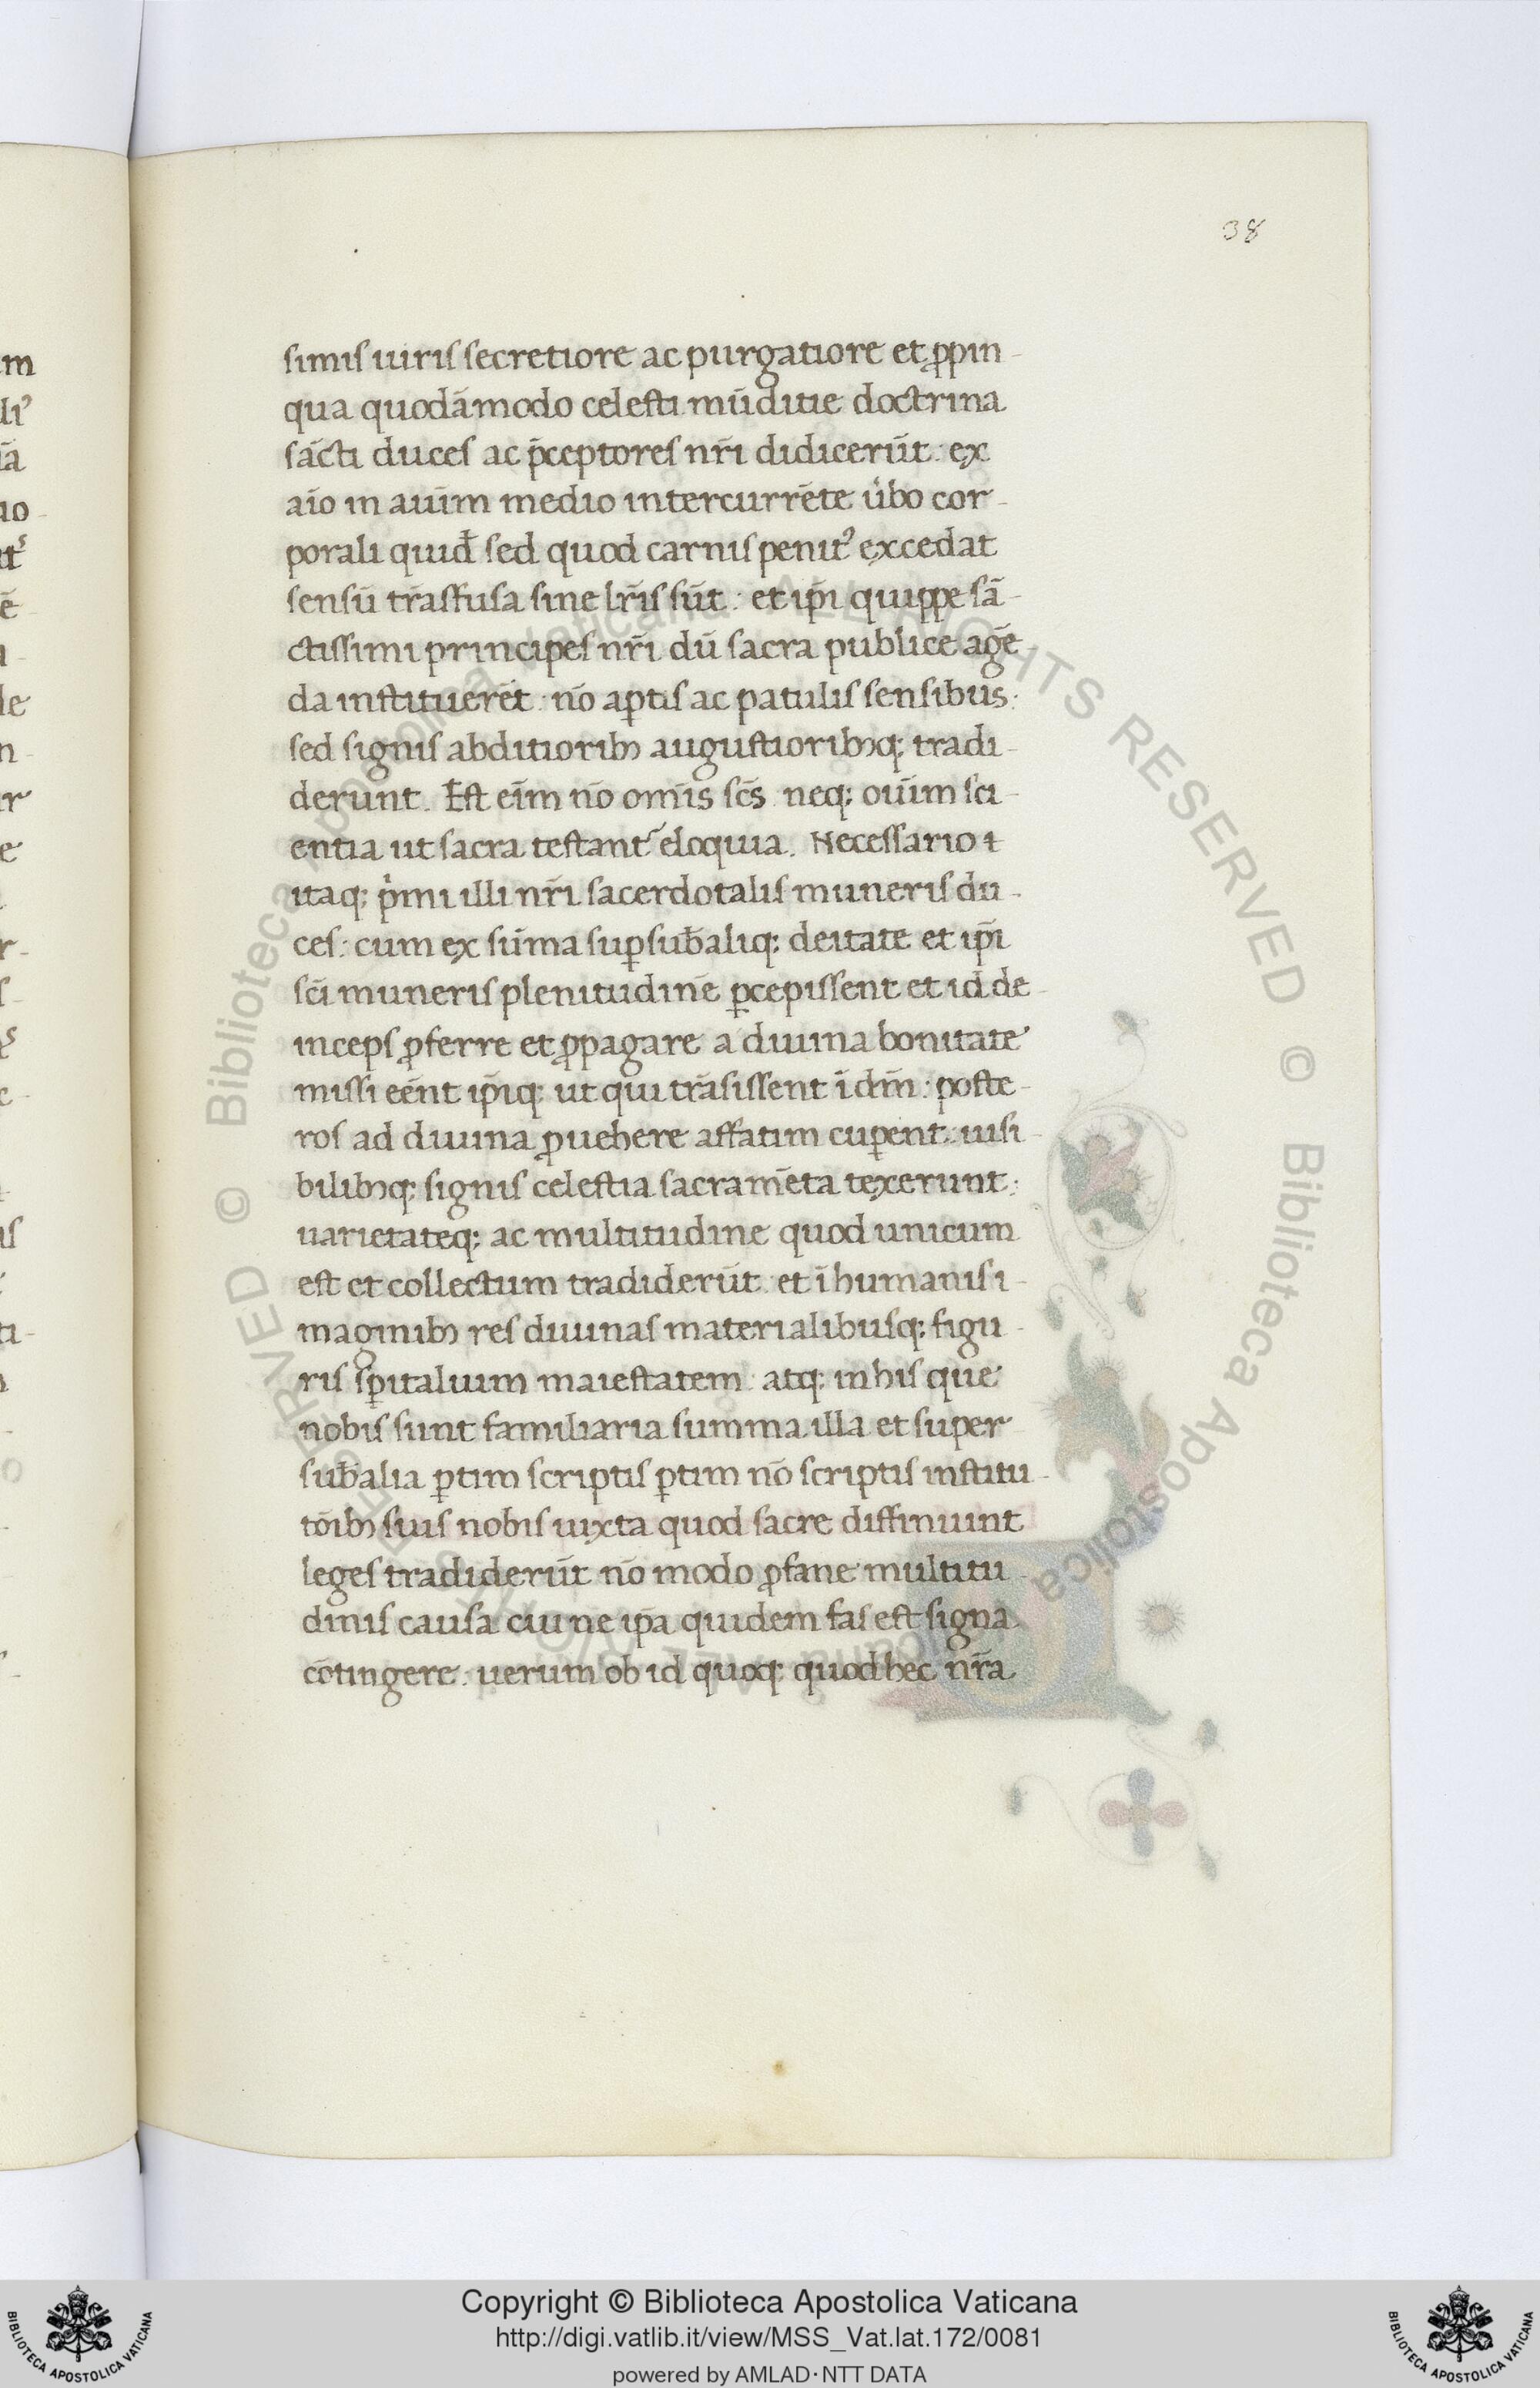 38
simis uiris secretiore ac purgatiore et ꝓpin-
qua quodāmodo celesti mūditie doctrina
sācti duces ac p̄ceptores nr̄i didicerūt: ex
aīo in aīum medio intercurrēte u̇bo cor-
porali quid̄ sed quod carnis penitꝰ excedat
sensū trāsfusa sine lr̄is sūt: et ip̄i quippe sā-
ctissimi principes nr̄i dū sacra publice agē-
da instituerēt: nō aptis ac patulis sensibus:
sed signis abditioribꝫ augustioribꝫq; tradi-
derunt. Est eīm nō omīs sc̄s neq; ouīm sci-
entia ut sacra testant᷑ eloquia. Necessario
itaq; pi̇mi illi nr̄i sacerdotalis muneris du-
ces: cum ex sūma suꝑsub̄aliq; deitate et ip̄i
sc̄i muneris plenitudinē ꝑcepissent et id de-
inceps ꝓferre et ꝓpagare a diuina bonitate
missi eēnt ip̄iq; ut qui trāsissent ī dm̄: poste-
ros ad diuina ꝓuehere affatim cuꝑent: uisi-
bilibꝫq; signis celestia sacramēta texerunt:
uarietateq; ac multitudine quod unicum
est et collectum tradiderūt: et ī humanis i-
maginibꝫ res diuinas materialibusq; figu-
ris sꝑitalium maiestatem: atq; in his que
nobis sunt familiaria summa illa et super
sub̄alia ꝑtim scriptis ꝑtim nō scriptis institu-
tōibꝫ suis nobis iuxta quod sacre diffiniunt
leges tradiderūt nō modo ꝓfane multitu-
dinis causa cui ne ip̄a quidem fas est signa
cōtingere: uerum ob id quoq; quod hec nr̄a
Copyright © Biblioteca Apostolica Vaticana
http://digi.vatlib.it/view/MSS_Vat.lat.172/0081
powered by AMLAD·NTT DATA
BIBLIOTECA APOSTOLICA VATICANA
BIBLIOTECA APOSTOLICA VATICANA